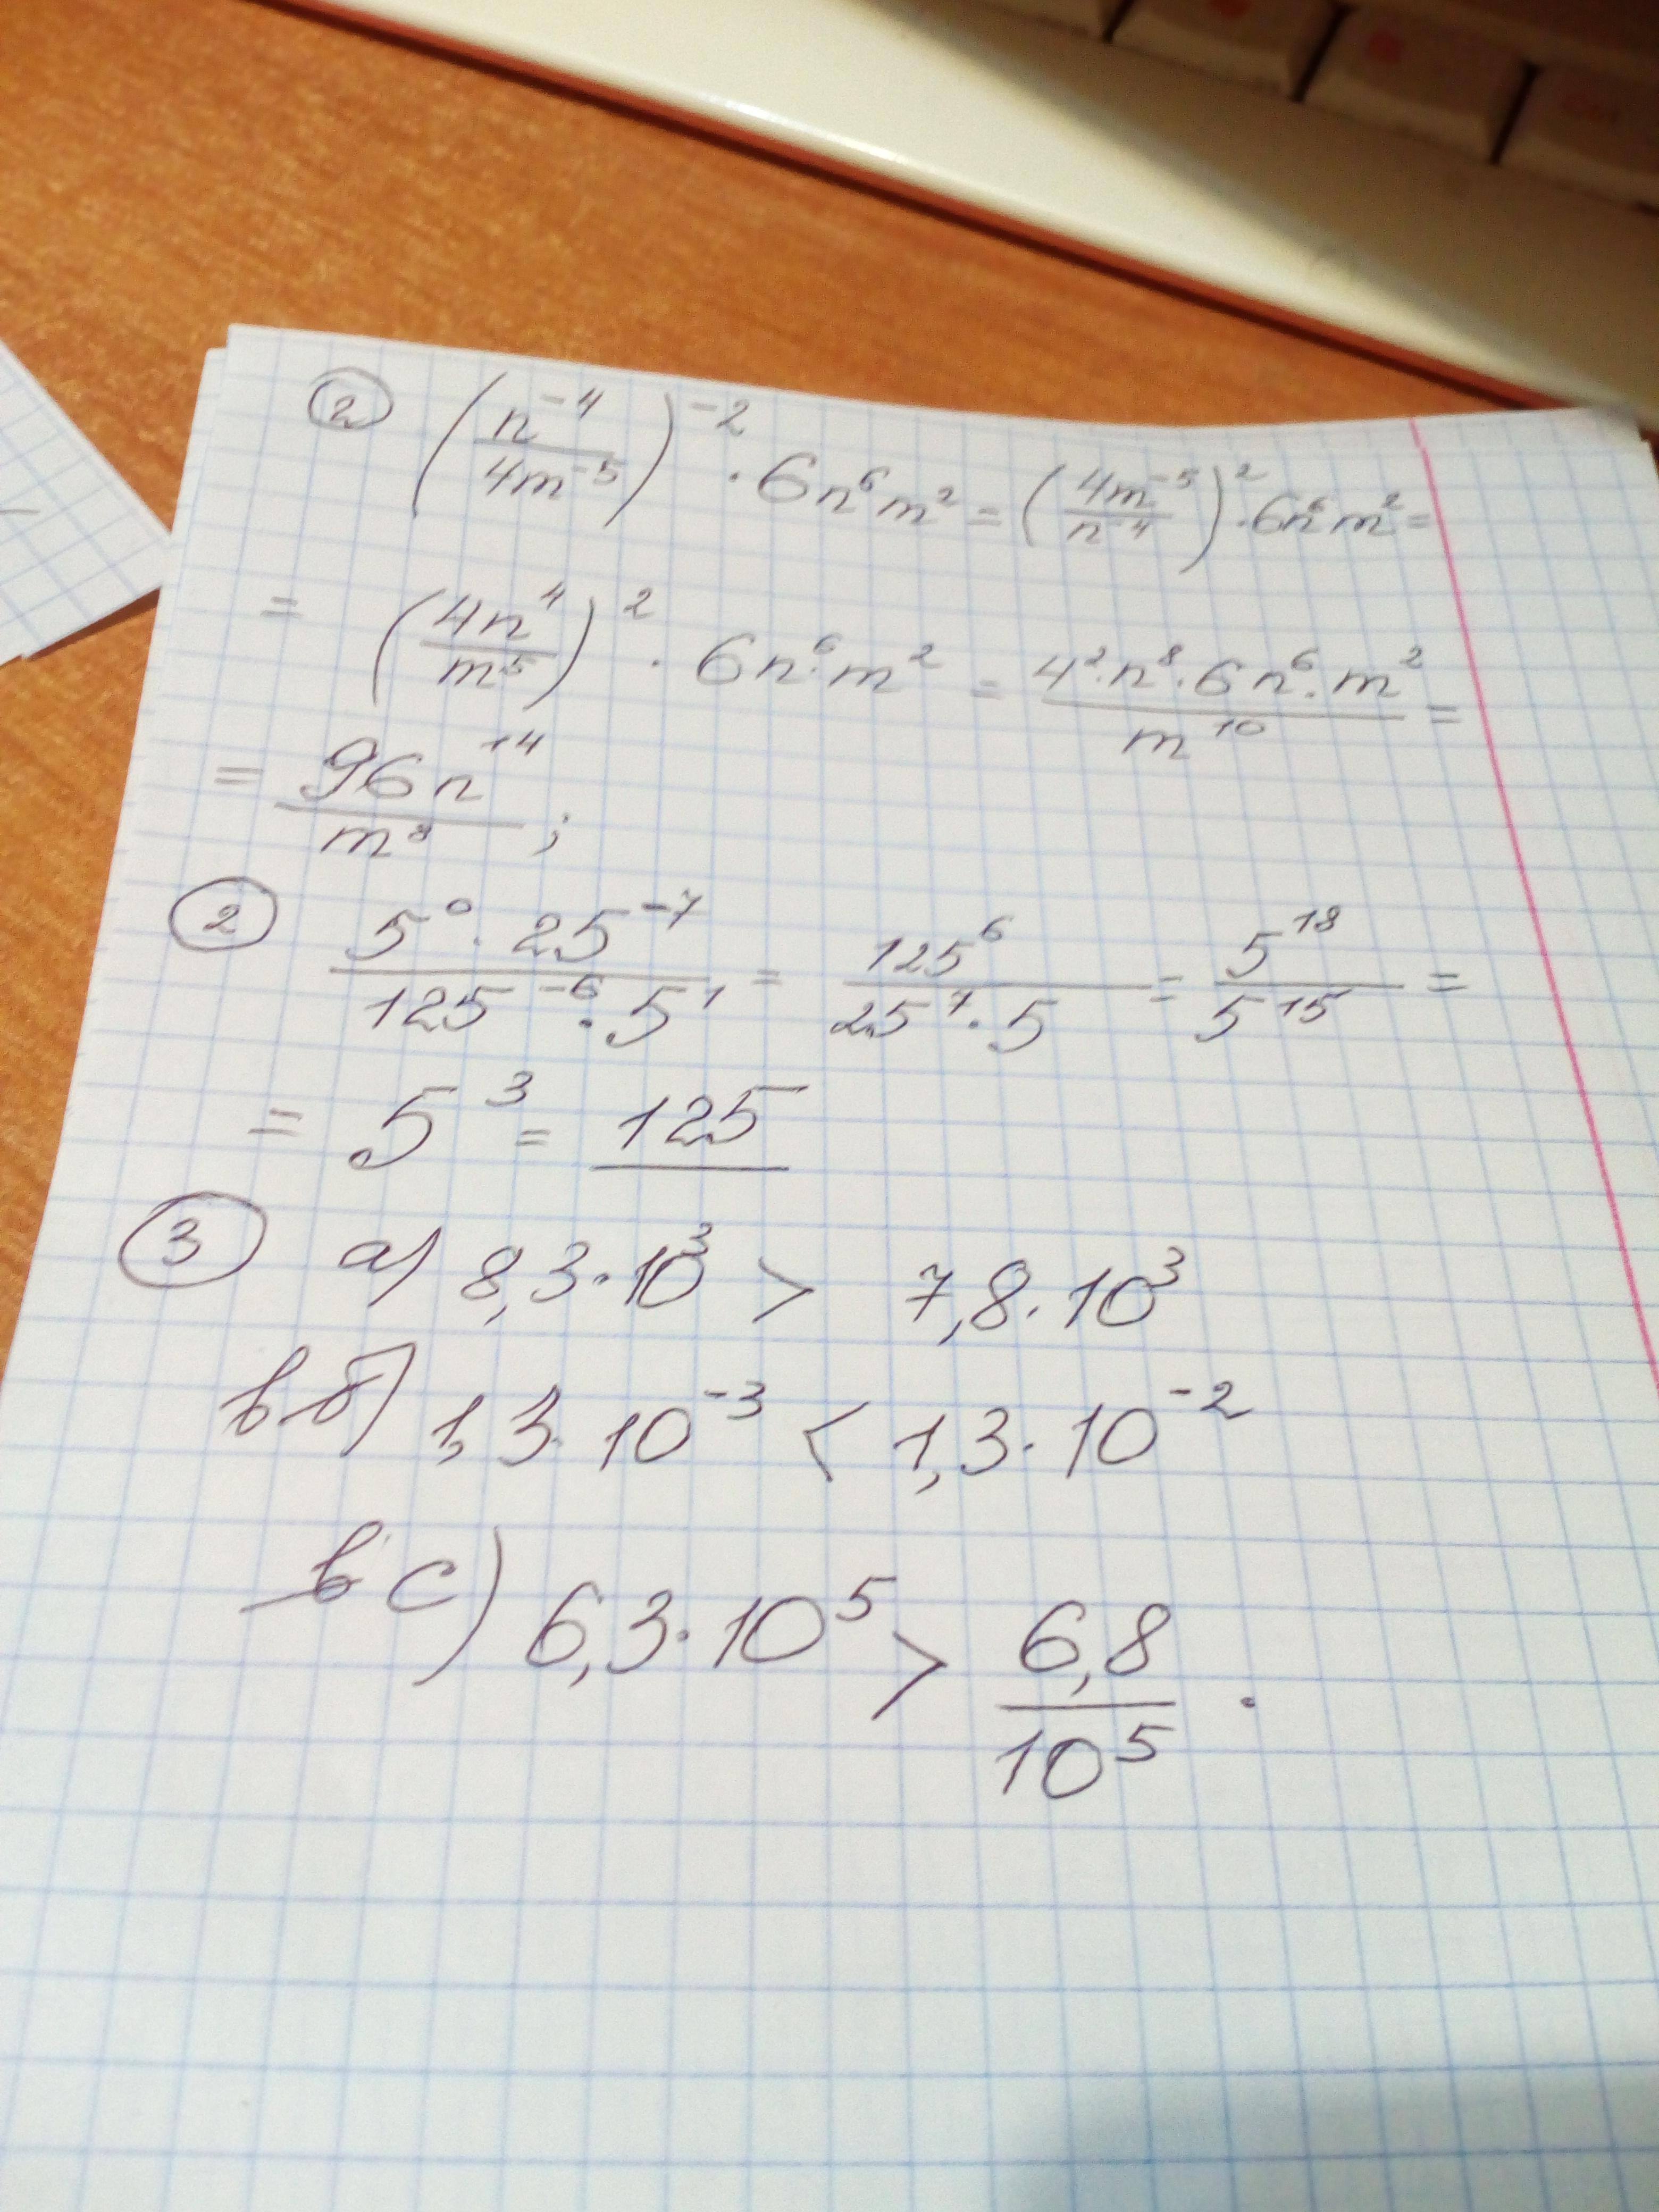 ② (n⁻⁴/4m⁻⁵)⁻² · 6n⁶m² = (4m⁻⁵/n⁻⁴)² · 6n⁶m² =
= (4n⁴/m⁵)² · 6n⁶·m² = 4²·n⁸·6n⁶·m²/m¹⁰ =
= 96n¹⁴/m⁸ ;
② 5⁰·25⁻⁷/125⁻⁶·5¹ = 125⁶/25⁷·5 = 5¹⁸/5¹⁵ =
= 5³ = 125
③ а) 8,3·10³ > 7,8·10³
б) 1,3·10⁻³ < 1,3·10⁻²
с) 6,3·10⁵ > 6,8/10⁵ .